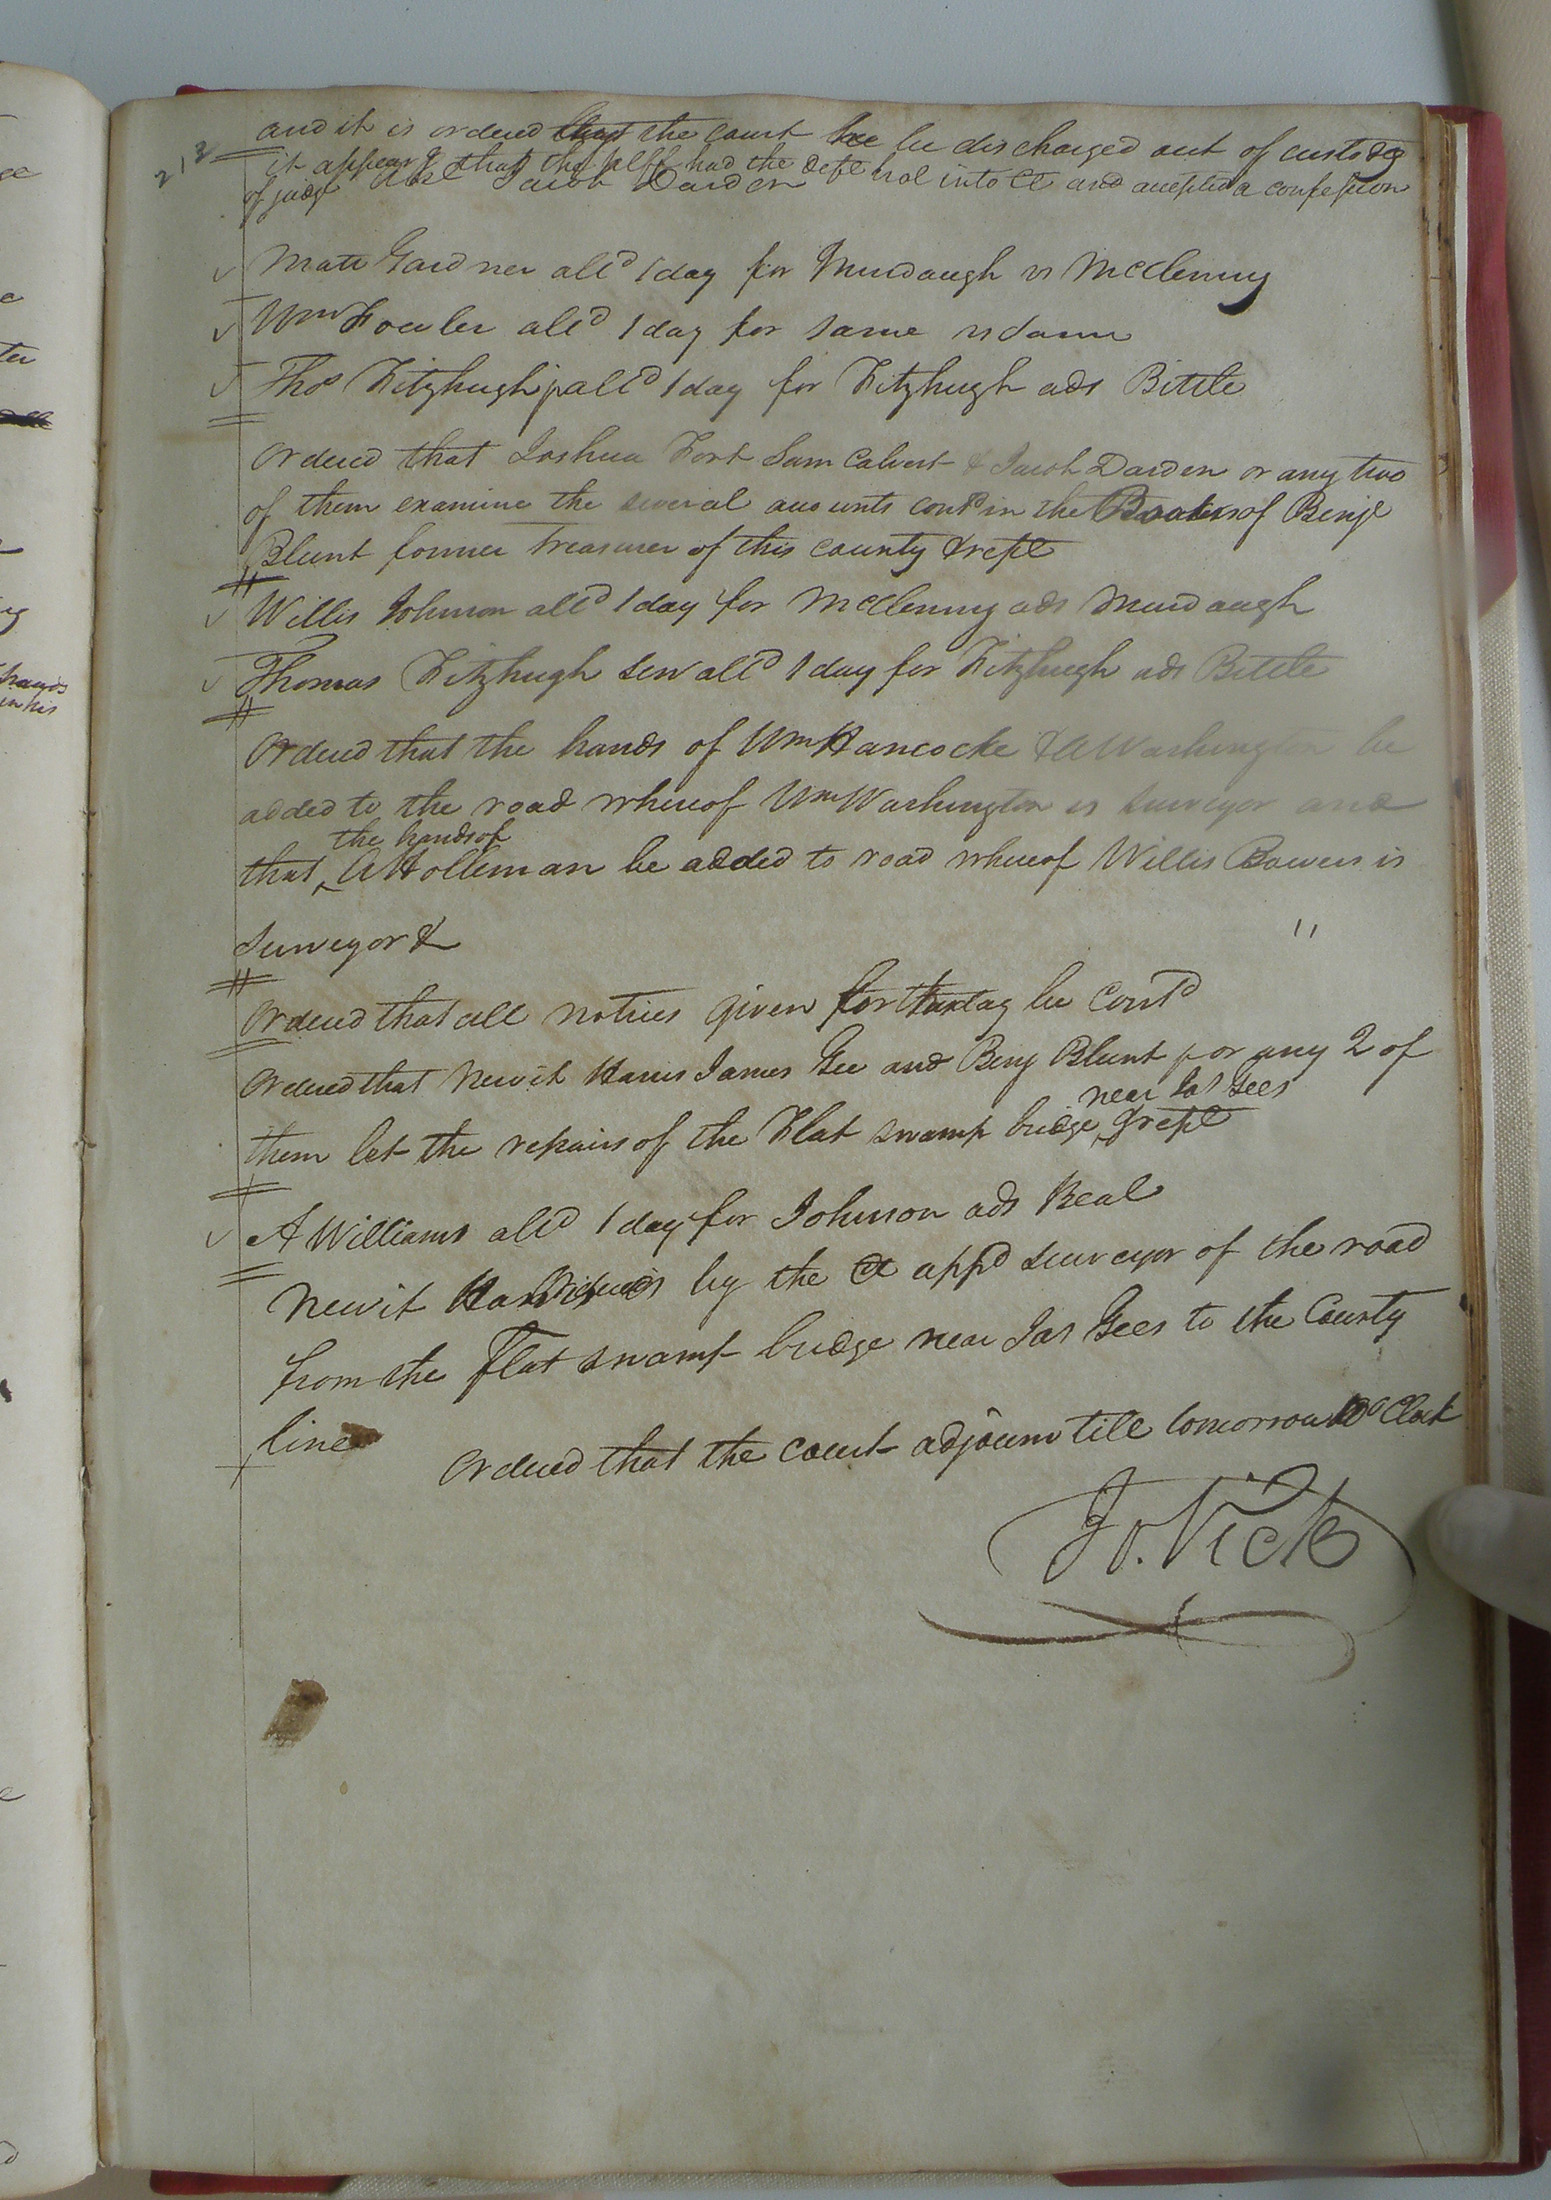 212
and it is ordered that the court be discharged out of custody
it appearg that the plff had the deft hol into Ct and accepted a confession
of judgt Abs Jacob Darden
Matt Gardner alld 1 day for Murdaugh vs McClenny
Wm Fowler alld 1 day for same vs same
Thos Fitzhugh j alld 1 day for Fitzhugh ads Bittle
Ordered that Joshua Fort Sam Calvert & Jacob Darden or any two
of them examine the several accounts contd in the Books of Benjn
Blunt former Treasurer of this County & rept
Willis Johnson alld 1 day for McClenny ads Murdaugh
Thomas Fitzhugh Sen alld 1 day for Fitzhugh ads Bittle
Ordered that the hands of Wm Hancocke & A Washington be
added to the road whereof Wm Washington is surveyor and
the hands of
that ‸ A Holleman be added to road whereof Willis Bowers is
Surveyor &
Ordered that all notices given for this day be Contd
Ordered that Newit Harris James Gee and Benj Blunt or any 2 of
near Jas Gees
them let the repairs of the Flat swamp bridge ‸ & rept
A Williams alld 1 day for Johnson ads Beal
Newit Harris is by the Ct appd Surveyor of the road
from the Flat swamp bridge near Jas Gees to the County
line
Ordered that the court adjourn till tomorrow 10 oClock
Jo. Vick
hands
in his